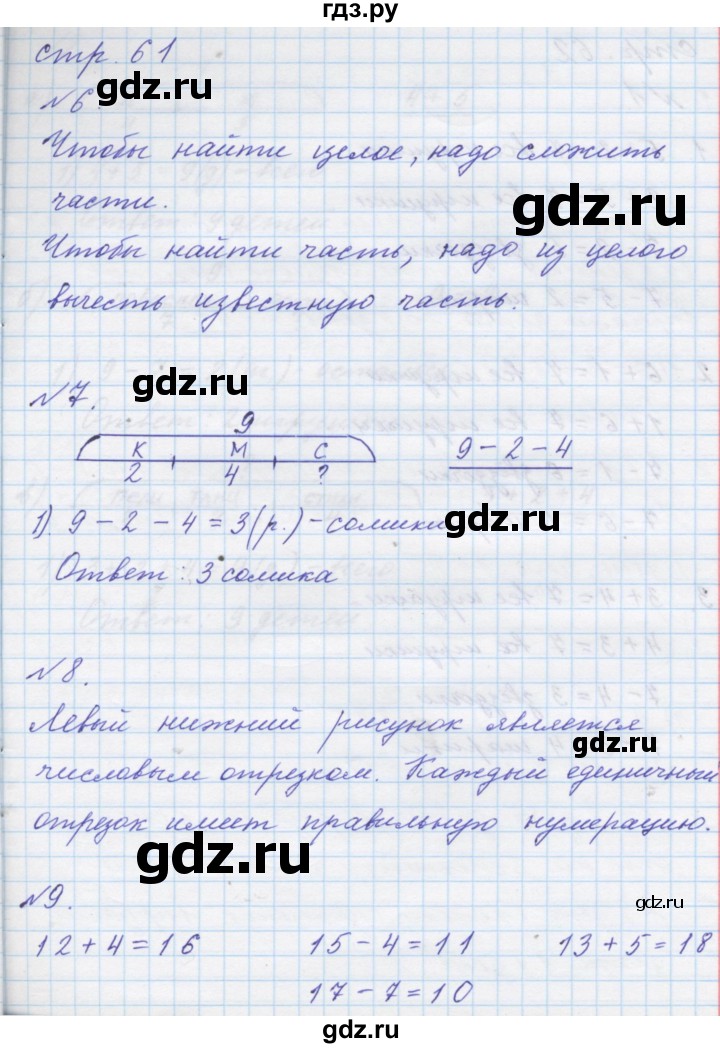 гдз.ру
стр. 61
gdz.ru
№6.
Чтобы найти целое, надо сложить
части.
gdz.ru
Чтобы найти часть, надо из целого
вычесть известную часть.
gdz.ru
№7.
9
К М С
2 4 ?
9 - 2 - 4
gdz.ru
1). 9 - 2 - 4 = 3 (р.) - сомики
Ответ: 3 сомика
№8.
Левый нижний рисунок является
gdz.ru
числовым отрезком. Каждый единичный
отрезок имеет правильную нумерацию.
gdz.ru
№9.
gdz.ru
12 + 4 = 16 15 - 4 = 11 13 + 5 = 18
17 - 7 = 10
gdz.ru
гдз.ру